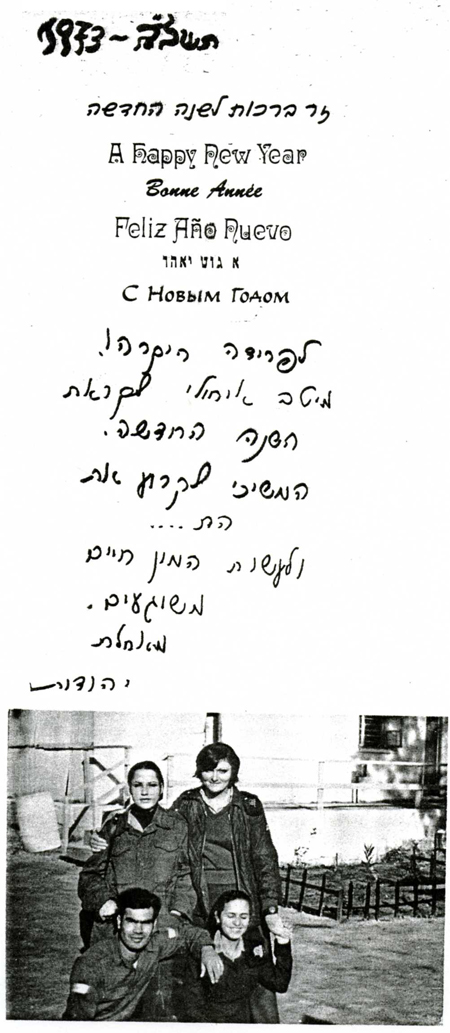 תשל"ה - 1973
זר ברכות לשנה החדשה
A Happy New Year
Bonne Année
Feliz Año Nuevo
א גוט יאהר
С Новым Годом
לפרידה היקרה!
מיטב איחולי לקראת
השנה החדשה.
המשיכי לקרוע את
הת ....
ולעשות המון חיים
משוגעים.
מאחלת
יהודית